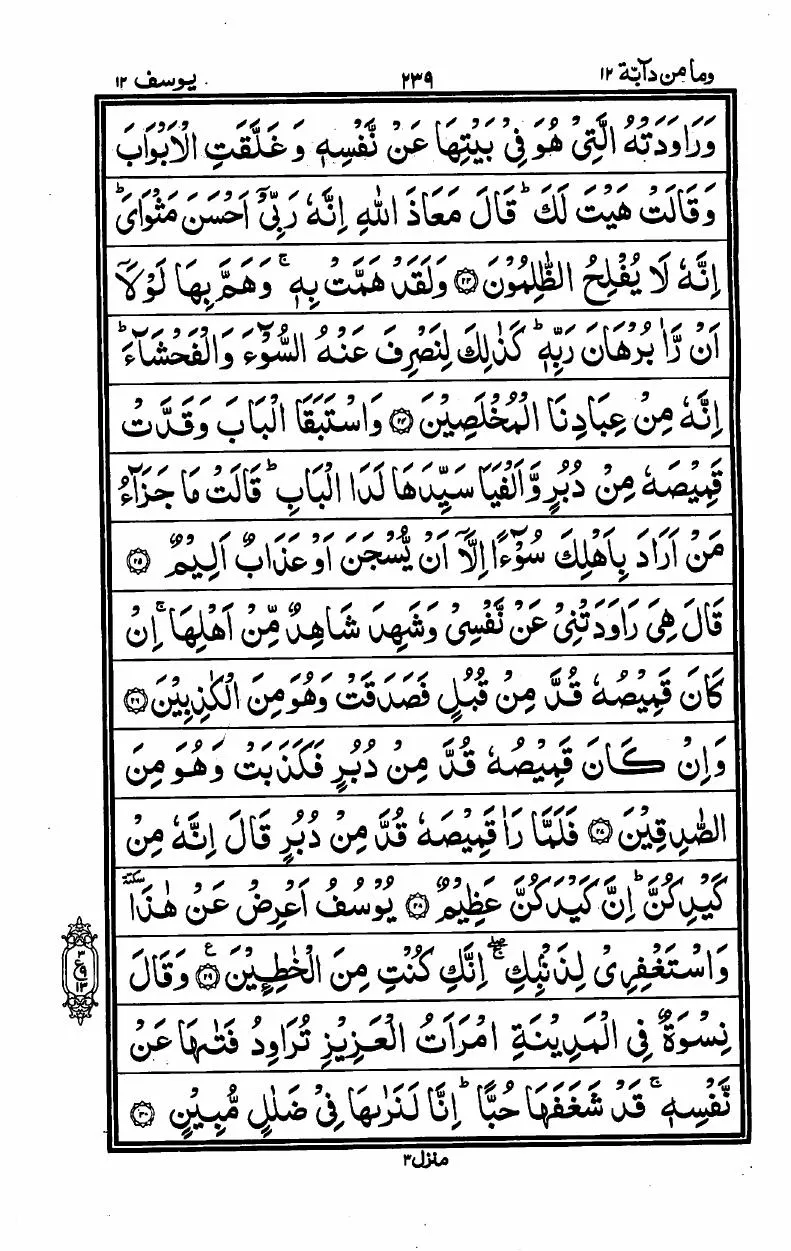 وما من دآبّة ١٢
٢٣٩
يوسف ١٢
وَرَاوَدَتْهُ الَّتِیْ هُوَ فِیْ بَیْتِهَا عَنْ نَّفْسِهٖ وَ غَلَّقَتِ الْاَبْوَابَ
وَ قَالَتْ هَیْتَ لَكَ ؕ قَالَ مَعَاذَ اللّٰهِ اِنَّهٗ رَبِّیْۤ اَحْسَنَ مَثْوَایَ ؕ
اِنَّهٗ لَا یُفْلِحُ الظّٰلِمُوْنَ ۝۲۳ وَلَقَدْ هَمَّتْ بِهٖ ۚ وَهَمَّ بِهَا لَوْلَاۤ
اَنْ رَّاٰ بُرْهَانَ رَبِّهٖ ؕ كَذٰلِكَ لِنَصْرِفَ عَنْهُ السُّوْٓءَ وَالْفَحْشَآءَ ؕ
اِنَّهٗ مِنْ عِبَادِنَا الْمُخْلَصِیْنَ ۝۲۴ وَاسْتَبَقَا الْبَابَ وَقَدَّتْ
قَمِیْصَهٗ مِنْ دُبُرٍ وَّاَلْفَیَا سَیِّدَهَا لَدَا الْبَابِ ؕ قَالَتْ مَا جَزَآءُ
مَنْ اَرَادَ بِاَهْلِكَ سُوْٓءًا اِلَّاۤ اَنْ یُّسْجَنَ اَوْ عَذَابٌ اَلِیْمٌ ۝۲۵
قَالَ هِیَ رَاوَدَتْنِیْ عَنْ نَّفْسِیْ وَشَهِدَ شَاهِدٌ مِّنْ اَهْلِهَا ۚ اِنْ
كَانَ قَمِیْصُهٗ قُدَّ مِنْ قُبُلٍ فَصَدَقَتْ وَهُوَ مِنَ الْكٰذِبِیْنَ ۝۲۶
وَاِنْ كَانَ قَمِیْصُهٗ قُدَّ مِنْ دُبُرٍ فَكَذَبَتْ وَهُوَ مِنَ
الصّٰدِقِیْنَ ۝۲۷ فَلَمَّا رَاٰ قَمِیْصَهٗ قُدَّ مِنْ دُبُرٍ قَالَ اِنَّهٗ مِنْ
كَیْدِكُنَّ ؕ اِنَّ كَیْدَكُنَّ عَظِیْمٌ ۝۲۸ یُوْسُفُ اَعْرِضْ عَنْ هٰذَا ٚ سكتة
وَاسْتَغْفِرِیْ لِذَنْۢبِكِ ۖۚ اِنَّكِ كُنْتِ مِنَ الْخٰطِـِٕیْنَ ۝۲۹ ع وَقَالَ
۳
ع۹
۱۳
نِسْوَةٌ فِی الْمَدِیْنَةِ امْرَاَتُ الْعَزِیْزِ تُرَاوِدُ فَتٰىهَا عَنْ
نَّفْسِهٖ ۚ قَدْ شَغَفَهَا حُبًّا ؕ اِنَّا لَنَرٰىهَا فِیْ ضَلٰلٍ مُّبِیْنٍ ۝۳۰
منزل۳